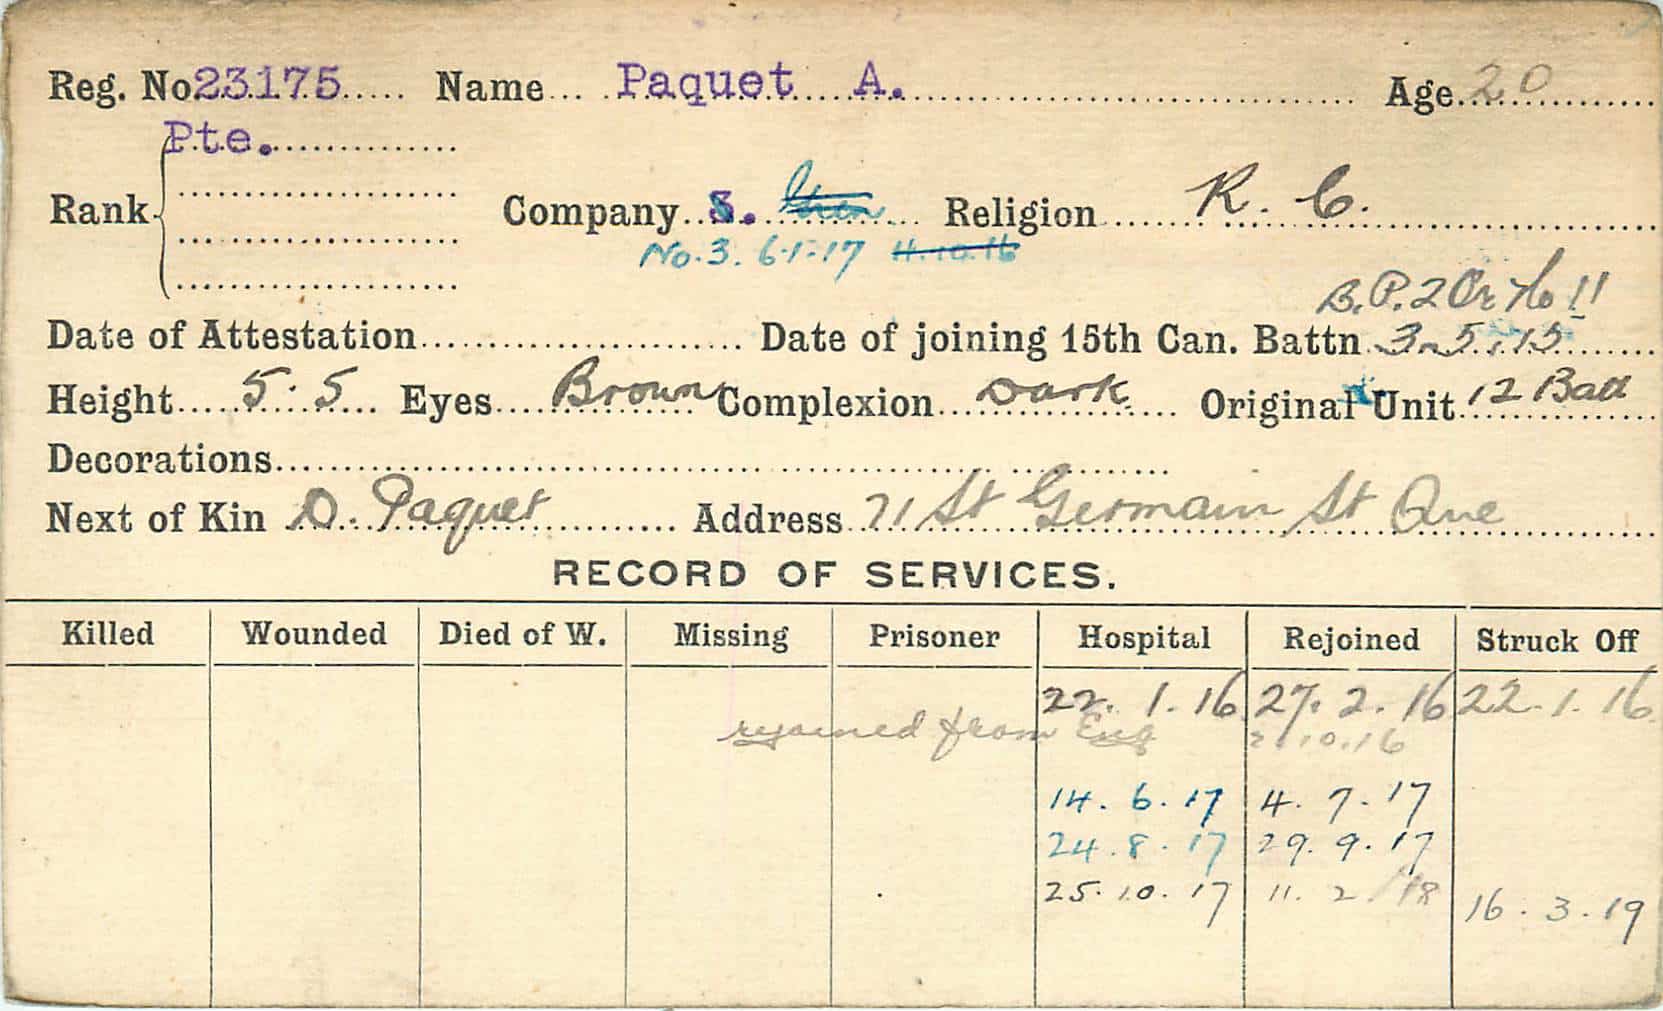 Reg. No 23175 Name Paquet A. Age 20
Pte.
Rank Company Religion R. C.
No. 3. 6.1.17 11.10.16
B.P. 2
Date of Attestation Date of joining 15th Can. Battn 3.5.15
Height 5.5 Eyes Brown Complexion Dark Original Unit 12 Batt
Decorations
Next of Kin D. Paquet Address 71 St Germain St Que
RECORD OF SERVICES.
Killed Wounded Died of W. Missing Prisoner Hospital Rejoined Struck Off
22. 1. 16 27. 2. 16 22. 1. 16
rejoined from Eng 10.16
14. 6. 17 4. 7. 17
24. 8. 17 29. 9. 17
25. 10. 17 11. 2 18
16. 3. 19